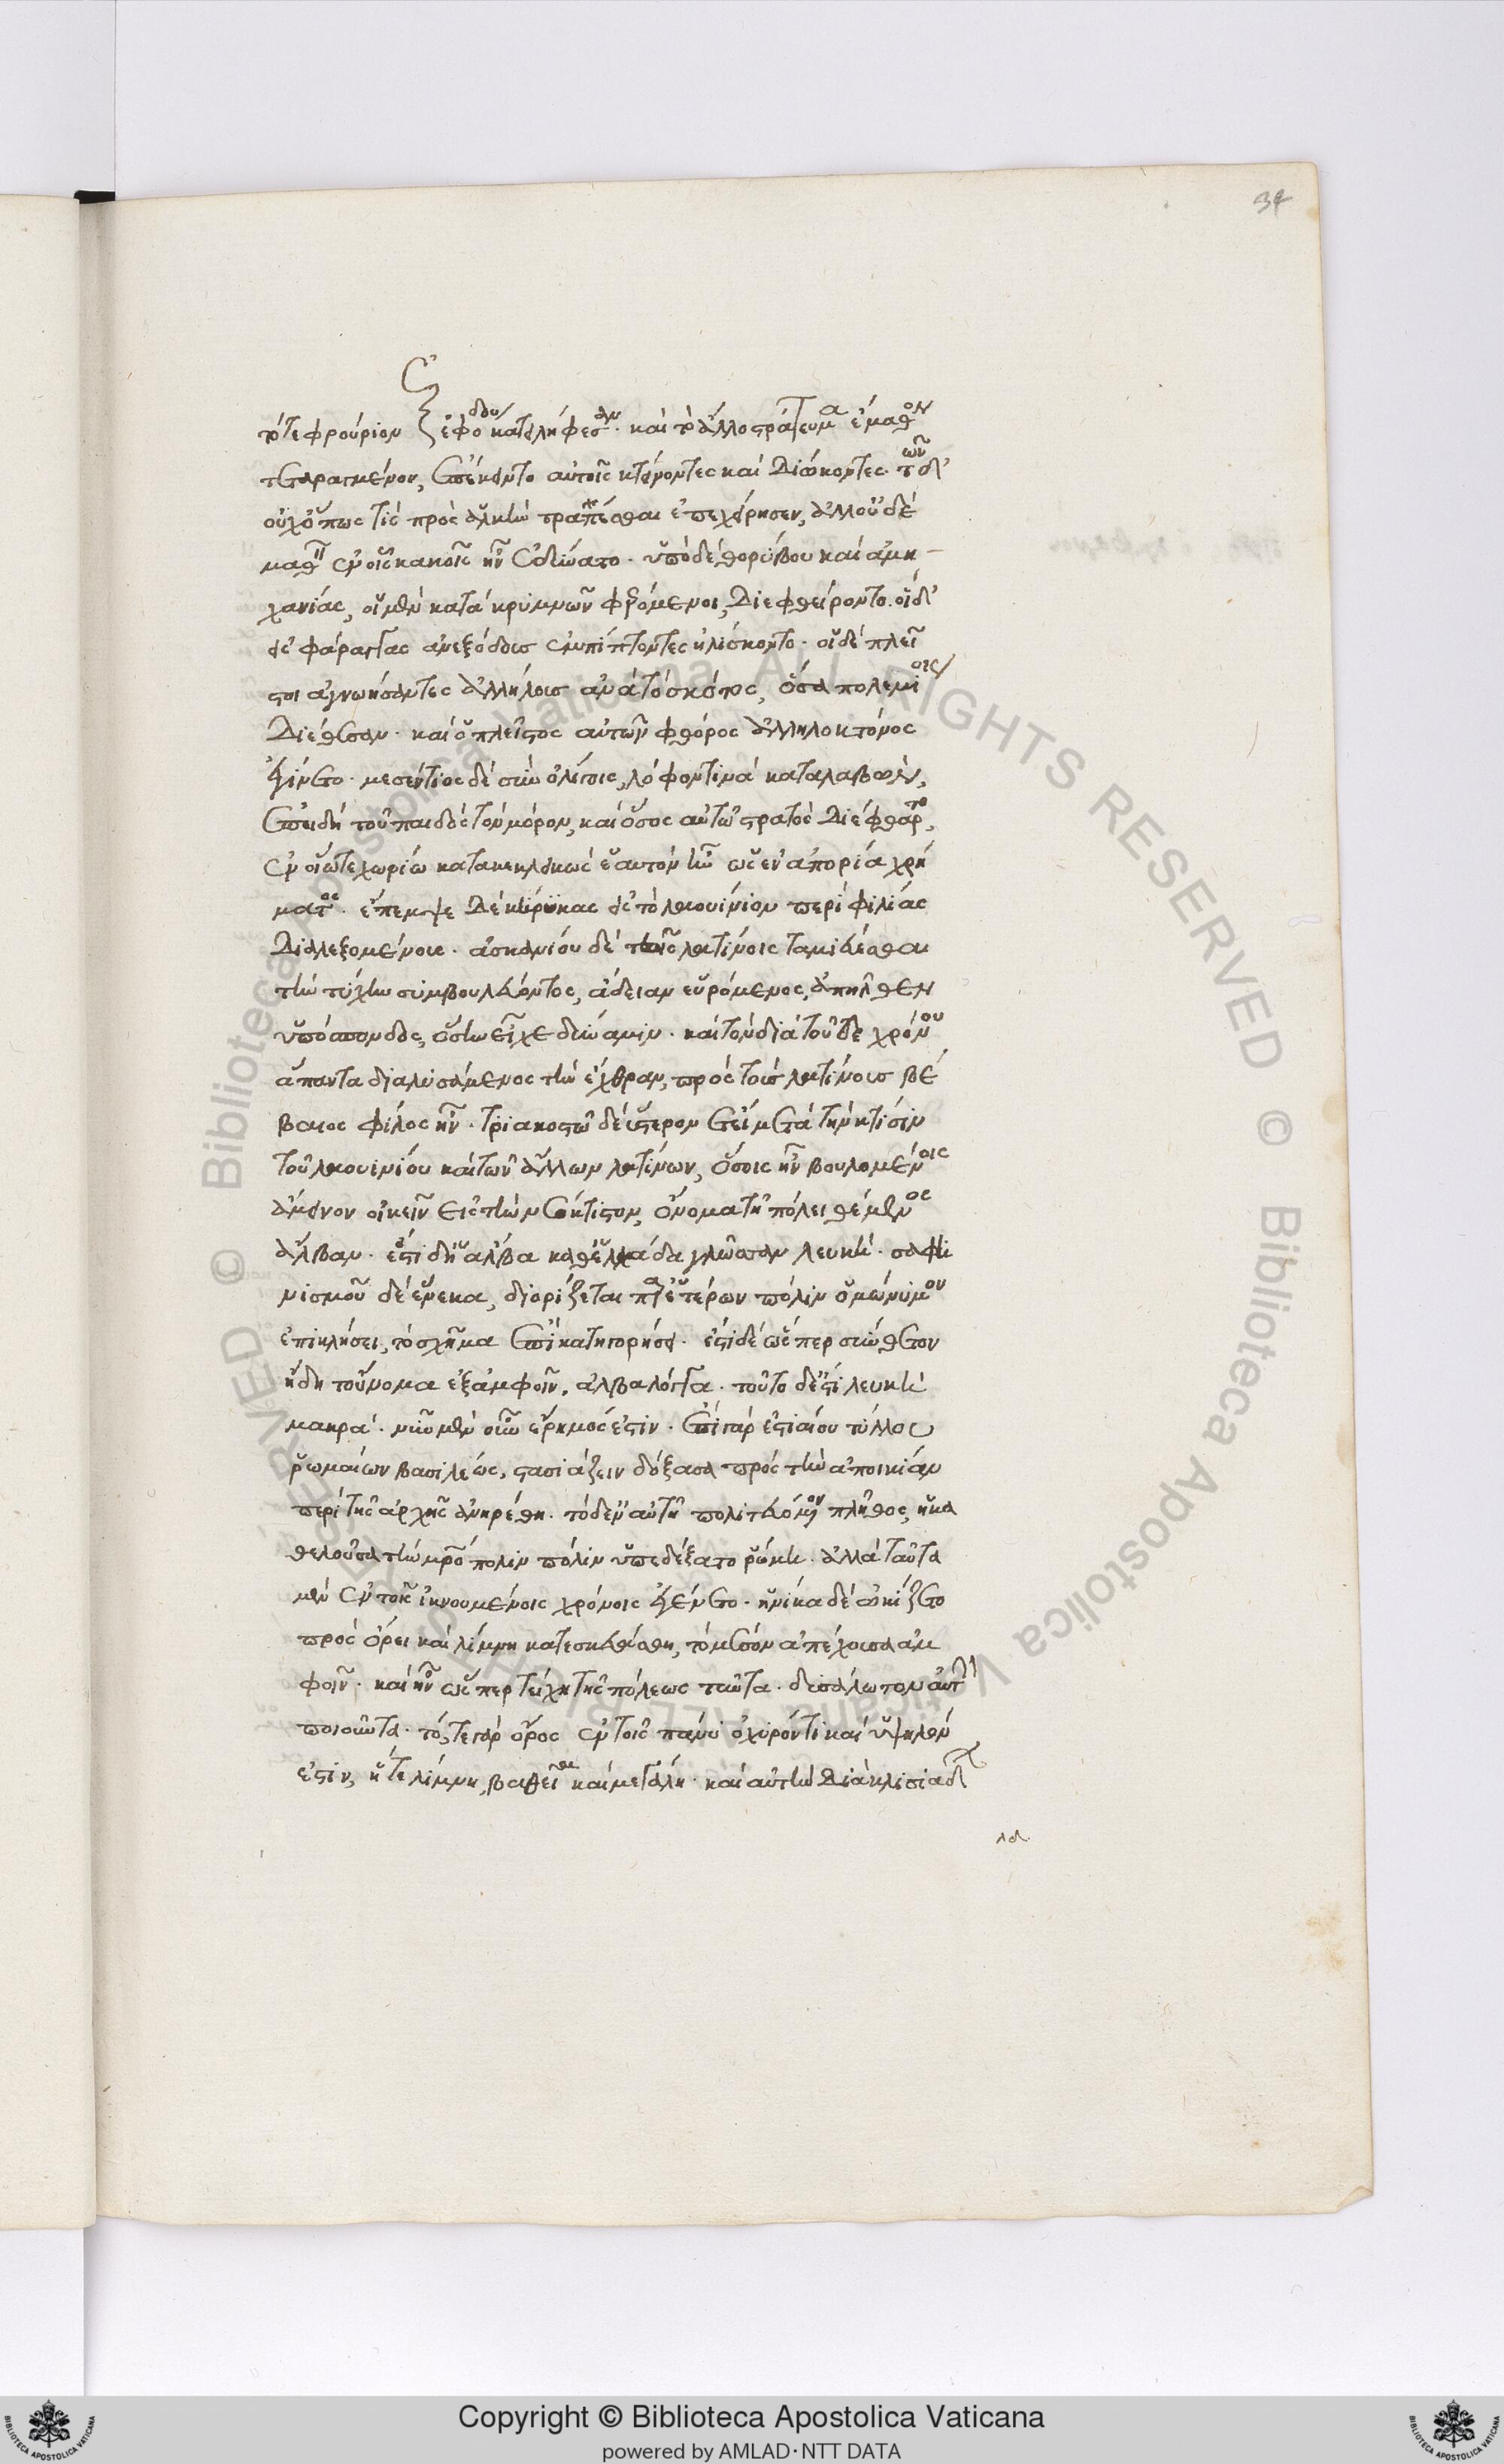 34
τό τε φρούριον ἐξ ἐφόδου κατειλήφεσαν. καὶ τὸ ἄλλο στράτευμα ἔμαθον
τεταραγμένον, ἐπέκειντο αὐτοῖς κτείνοντες καὶ διώκοντες. τῶν δ'
οὐχ ὅπως τίς πρὸς ἀλκὴν τραπέσθαι ἐπεχείρησεν, ἀλλ' οὐδὲ
μαθεῖν ἐν οἷς κακοῖς ἦν ἐδύνατο. ὑπὸ δὲ θορύβου καὶ ἀμη-
χανίας, οἱ μὲν κατὰ κρημνῶν φερόμενοι, διεφθείροντο. οἱ δ'
εἰς φάραγγας ἀνεξόδους ἐνπίπτοντες ἡλίσκοντο. οἱ δὲ πλεῖ
στοι ἀγνωήσαντες ἀλλήλους ἀνὰ τὸ σκότος, ὅσα πολεμίους
διέθεσαν. καὶ ὁ πλεῖστος αὐτῶν φθόρος ἀλληλοκτόνος
ἐγίνετο. μεσέντιος δὲ σὺν ὀλίγοις, λόφον τινὰ καταλαβών,
ἐπειδὴ τοῦ παιδὸς τὸν μόρον, καὶ ὅσος αὐτῷ στρατὸς διέφθαρτο,
ἐν οἵῳ τε χωρίῳ κατακεκλεικὼς ἑαυτὸν ἦν ὡς ἐν ἀπορίᾳ χρή
ματος. ἔπεμψε δὲ κήρυκας εἰς τὸ λαουίνιον περὶ φιλίας
διαλεξομένους. ἀσκανίου δὲ τοῖς λατίνοις ταμιεύεσθαι
τὴν τύχην συμβουλεύοντος, ἄδειαν εὑρόμενος, ἀπῆλθεν
ὑπόσπονδος, ὅσην εἶχε δύναμιν. καὶ τὸν διὰ τοῦδε χρόνου
ἅπαντα διαλυσάμενος τὴν ἔχθραν, πρὸς τοὺς λατίνους βέ
βαιος φίλος ἦν. τριακοστῷ δὲ ὕστερον ἔτει μετὰ τὴν κτίσιν
τοῦ λαουινίου καὶ τῶν ἄλλων λατίνων, ὅσοις ἦν βουλομένοις
ἄμεινον οἰκεῖν εἰς τὴν νεόκτιστον, ὄνομα τῇ πόλει θέμενος
ἄλβαν. ἔστι δὴ ἡ ἄλβα καθ' ἑλλάδα γλῶσσαν λευκή. σαφη
νισμοῦ δὲ ἕνεκα, διορίζεται παρ' ἑτέρων πόλιν ὁμώνυμον
ἐπικλήσει, τὸ σχῆμα ἐπικατηγορήσει. ἔστι δὲ ὥσπερ σύνθετον
ἤδη τοὔνομα ἐξ ἀμφοῖν, ἀλβαλόγγα. τοῦτο δέ ἐστι λευκὴ
μακρά. νῦν μὲν οὖν ἔρημός ἐστιν. ἐπὶ γὰρ ἑστιαίου τύλλου
ῥωμαίων βασιλέως, στασιάζειν δόξασα πρὸς τὴν ἀποικίαν
περὶ τῆς ἀρχῆς ἀνῃρέθη. τὸ δ' ἐν αὐτῇ πολιτευόμενον πλῆθος, ἡ κα
θελοῦσα τὴν μητρόπολιν πόλιν ὑπεδέξατο ῥώμη. ἀλλὰ ταῦτα
μὲν ἐν τοῖς ἱκνουμένοις χρόνοις ἐγένετο. ἡνίκα δὲ ὠκίζετο
πρὸς ὄρει καὶ λίμνῃ κατεσκευάσθη, τὸ μέσον ἀπέχουσα ἀμ
φοῖν. καὶ ἦν ὥσπερ τείχη τῆς πόλεως ταῦτα. δυσάλωτον αὐτὴν
ποιοῦντα. τό, τε γὰρ ὄρος ἐν τοῖς πάνυ ὀχυρόν τι καὶ ὑψηλόν
ἐστιν, ἥ τε λίμνη, βαθεῖα καὶ μεγάλη. καὶ αὐτὴν διακλισιάδων
λα.
Copyright © Biblioteca Apostolica Vaticana
powered by AMLAD·NTT DATA